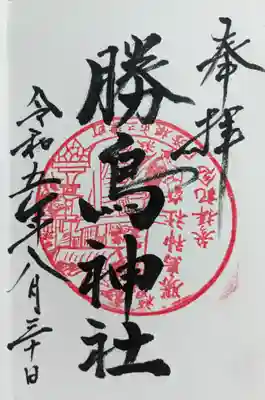 奉拝
勝鳥神社
令和五年八月三十日